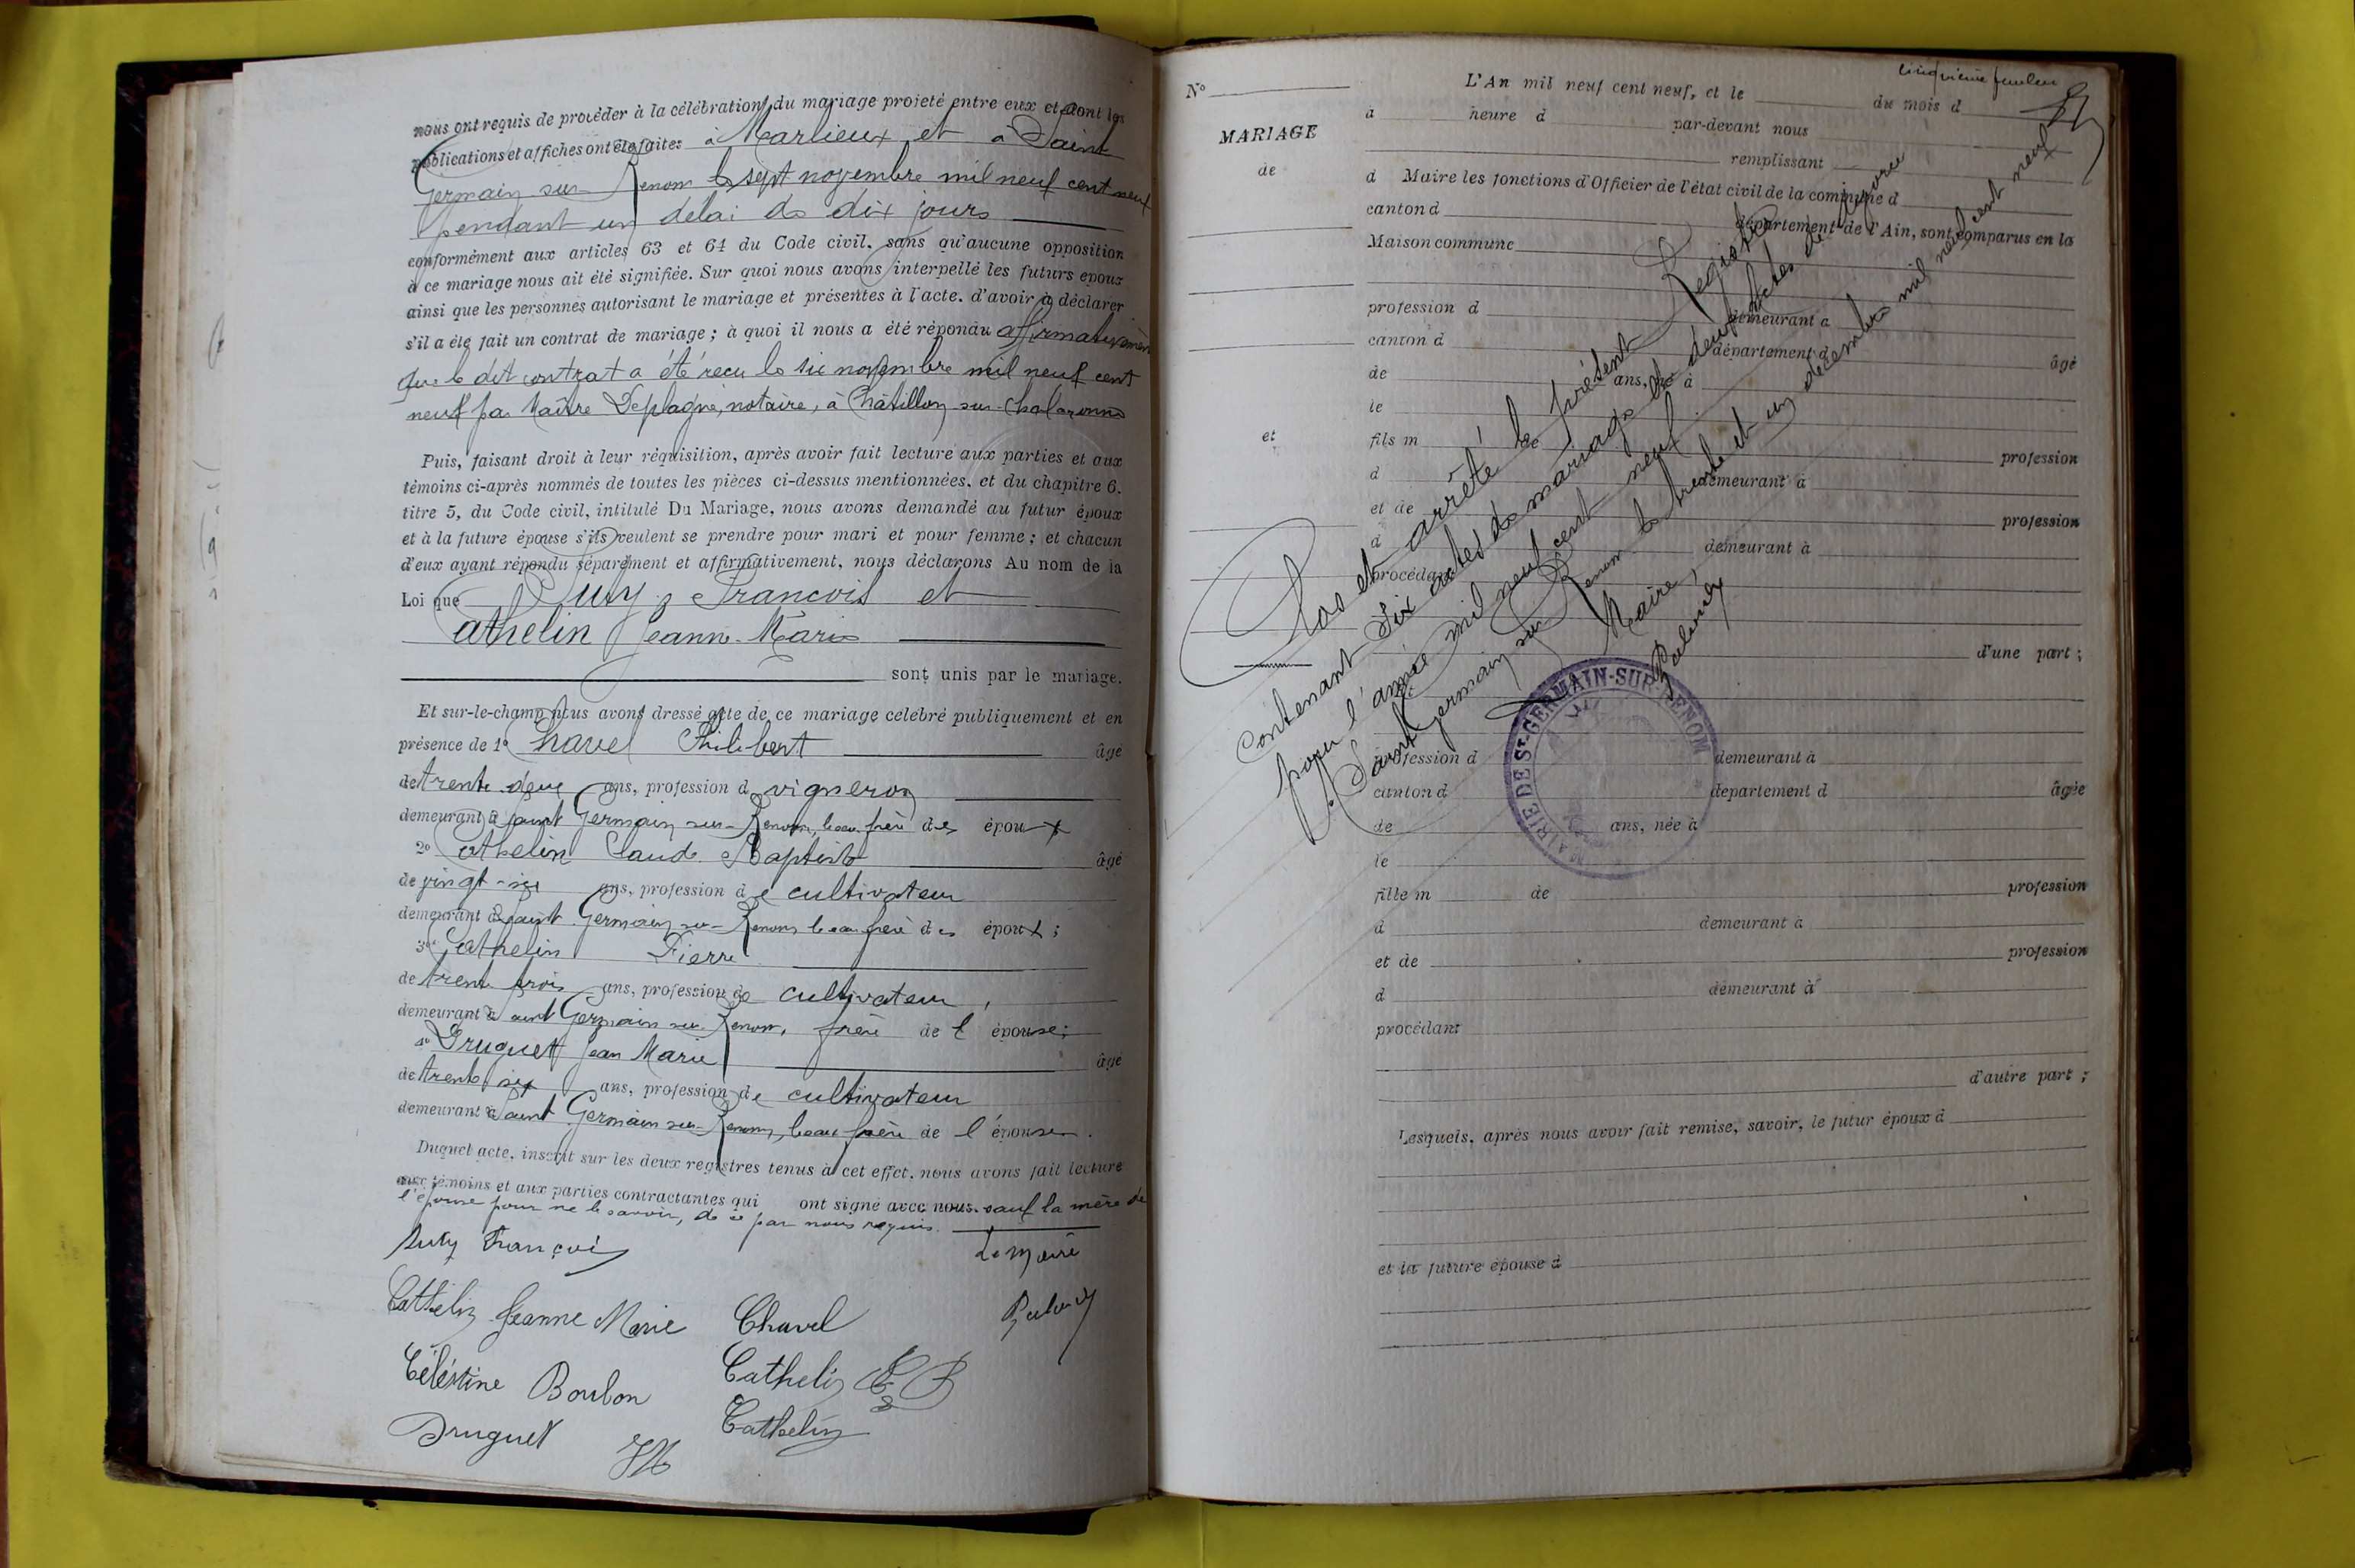 nous ont requis de procéder à la célébration du mariage projeté entre eux et dont les
publications et affiches ont été faites à Marlieux et à Saint
Germain sur Renom le sept novembre mil neuf cent neuf
pendant un délai de dix jours
conformément aux articles 63 et 64 du Code civil, sans qu'aucune opposition
à ce mariage nous ait été signifiée. Sur quoi nous avons interpellé les futurs époux
ainsi que les personnes autorisant le mariage et présentes à l'acte, d'avoir à déclarer
s'il a été fait un contrat de mariage ; à quoi il nous a été répondu affirmativement
que le dit contrat a été reçu le six novembre mil neuf cent
neuf par Maître Deplagne, notaire, à Châtillon sur Chalaronne
Puis, faisant droit à leur réquisition, après avoir fait lecture aux parties et aux
témoins ci-après nommés de toutes les pièces ci-dessus mentionnées, et du chapitre 6,
titre 5, du Code civil, intitulé Du Mariage, nous avons demandé au futur époux
et à la future épouse s'ils veulent se prendre pour mari et pour femme ; et chacun
d'eux ayant répondu séparément et affirmativement, nous déclarons Au nom de la
Loi que Suty François et
Cathelin Jeanne-Marie
sont unis par le mariage.
Et sur-le-champ nous avons dressé acte de ce mariage célébré publiquement et en
présence de 1° Chavel Philibert âgé
de trente deux ans, profession de vigneron
demeurant à Saint Germain sur-Renom, beau frère des époux
2° Cathelin Claude Baptiste âgé
de vingt-six ans, profession de cultivateur
demeurant à Saint Germain sur-Renom beau frère des époux ;
3° Cathelin Pierre
de trente trois ans, profession de cultivateur,
demeurant à Saint Germain sur-Renom, frère de l'épouse ;
4° Druguet Jean Marie âgé
de trente six ans, profession de cultivateur
demeurant à Saint Germain sur-Renom, beau frère de l'épouse.
Duquel acte, inscrit sur les deux registres tenus à cet effet, nous avons fait lecture
aux témoins et aux parties contractantes qui ont signé avec nous sauf la mère de
l'épouse pour ne le savoir, de ce par nous requis.
Suty François Le maire
Cathelin Jeanne Marie Chavel
Céléstine Boulon Cathelin C B
Druguet JM Cathelin
cinquième feuillet
N° L'An mil neuf cent neuf, et le du mois d
à heure d par-devant nous
MARIAGE
remplissant
de
d Maire les fonctions d'Officier de l'état civil de la commune d
canton d département de l'Ain, sont comparus en la
Maison commune
profession d demeurant à
canton d département d âgé
de ans, né à
le
et
fils m de profession
d demeurant à
et de profession
d demeurant à
procédant
d'une part ;
profession d demeurant à
canton d département d âgée
de ans, née à
le
fille m de profession
d demeurant à
et de profession
d demeurant à
procédant
d'autre part ;
Lesquels, après nous avoir fait remise, savoir, le futur époux d
et la future épouse d
Clos et arrêté le présent Registre
contenant six actes de mariage et deux actes de divorce
pour l'année mil neuf cent neuf
A Saint Germain sur Renom le trente et un décembre mil neuf cent neuf
Le Maire,
MAIRIE DE St-GERMAIN-SUR-RENOM